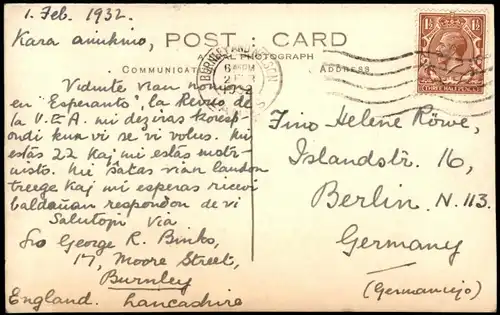 1. Feb. 1932.
Kara amikino,
POST CARD
PHOTOGRAPH
COMMUNICAT
ADDRESS
BURNLEY AND NELSON
1½ 1½
THREE HALFPENCE
Vidinte vian nomon
en "Esperanto", la Revuo de
la U.E.A. mi deziras koresp-
ondi kun vi se vi volus. Mi
estas 22 kaj mi estas instr-
uisto. Mi ŝatas vian landon
treege kaj mi esperas ricevi
baldaŭan respondon de vi
Salutojn via
Sro George R. Binks,
17, Moore Street,
Burnley
England. Lancashire
Fino Helene Röwe,
Islandstr. 16,
Berlin N. 113.
Germany
(Germanujo)